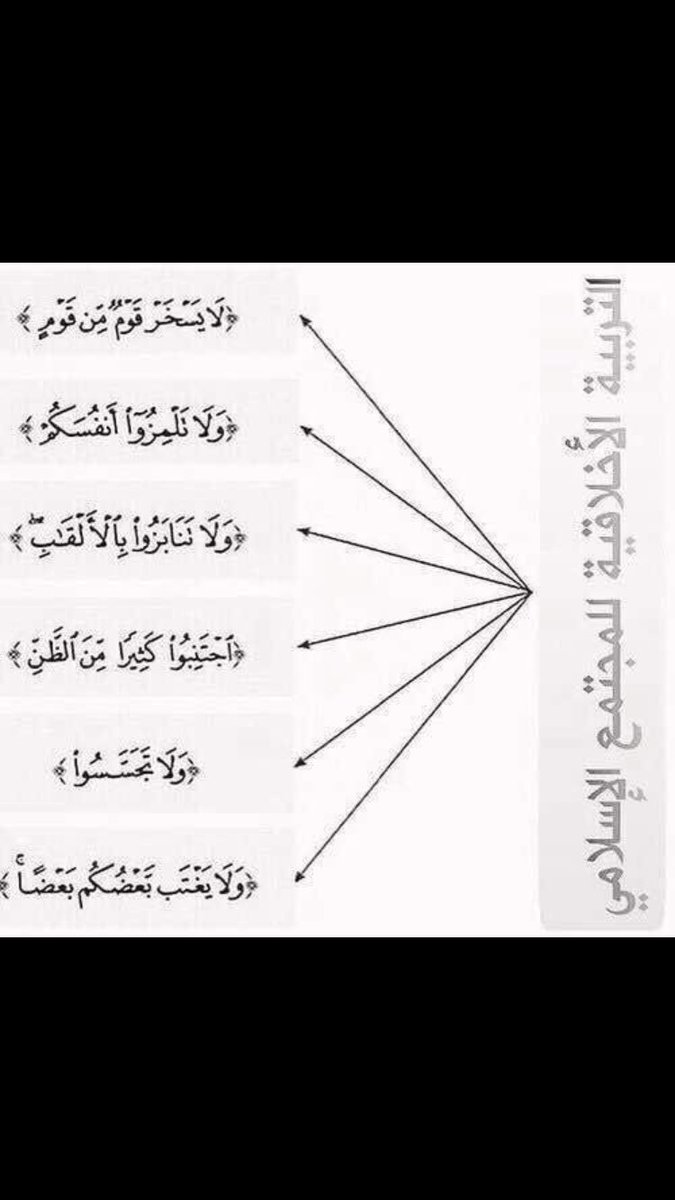 التربية الأخلاقية للمجتمع الإسلامي
﴿لَا يَسْخَرْ قَوْمٌ مِّن قَوْمٍ﴾
﴿وَلَا تَلْمِزُوٓا۟ أَنفُسَكُمْ﴾
﴿وَلَا تَنَابَزُوا۟ بِٱلْأَلْقَـٰبِ ۖ﴾
﴿ٱجْتَنِبُوا۟ كَثِيرًا مِّنَ ٱلظَّنِّ﴾
﴿وَلَا تَجَسَّسُوا۟﴾
﴿وَلَا يَغْتَب بَّعْضُكُم بَعْضًا ۚ﴾